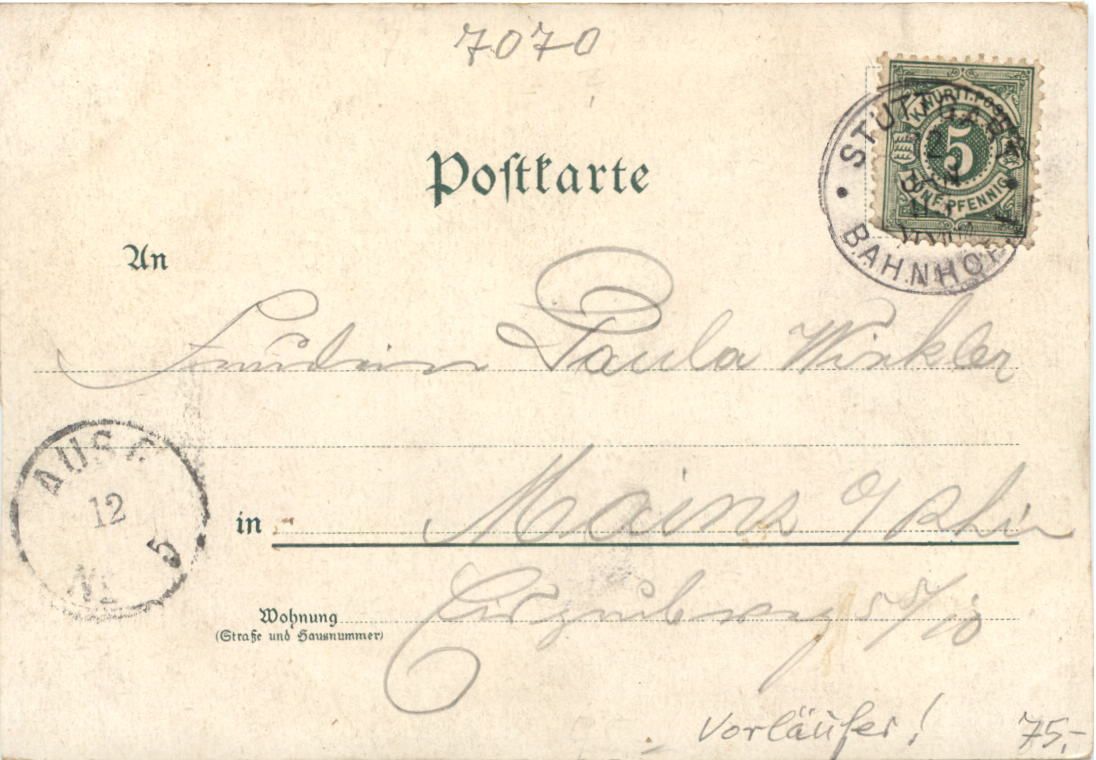 7070
K. WÜRTT. POST
5
FÜNF PFENNIG
STUTTGART
BAHNHOF
Postkarte
An
Fräulein Paula Winkler
AUSG
12
5
N1
in Mainz a/Rhein
Wohnung
(Straße und Hausnummer)
Vorläufer! 75,-